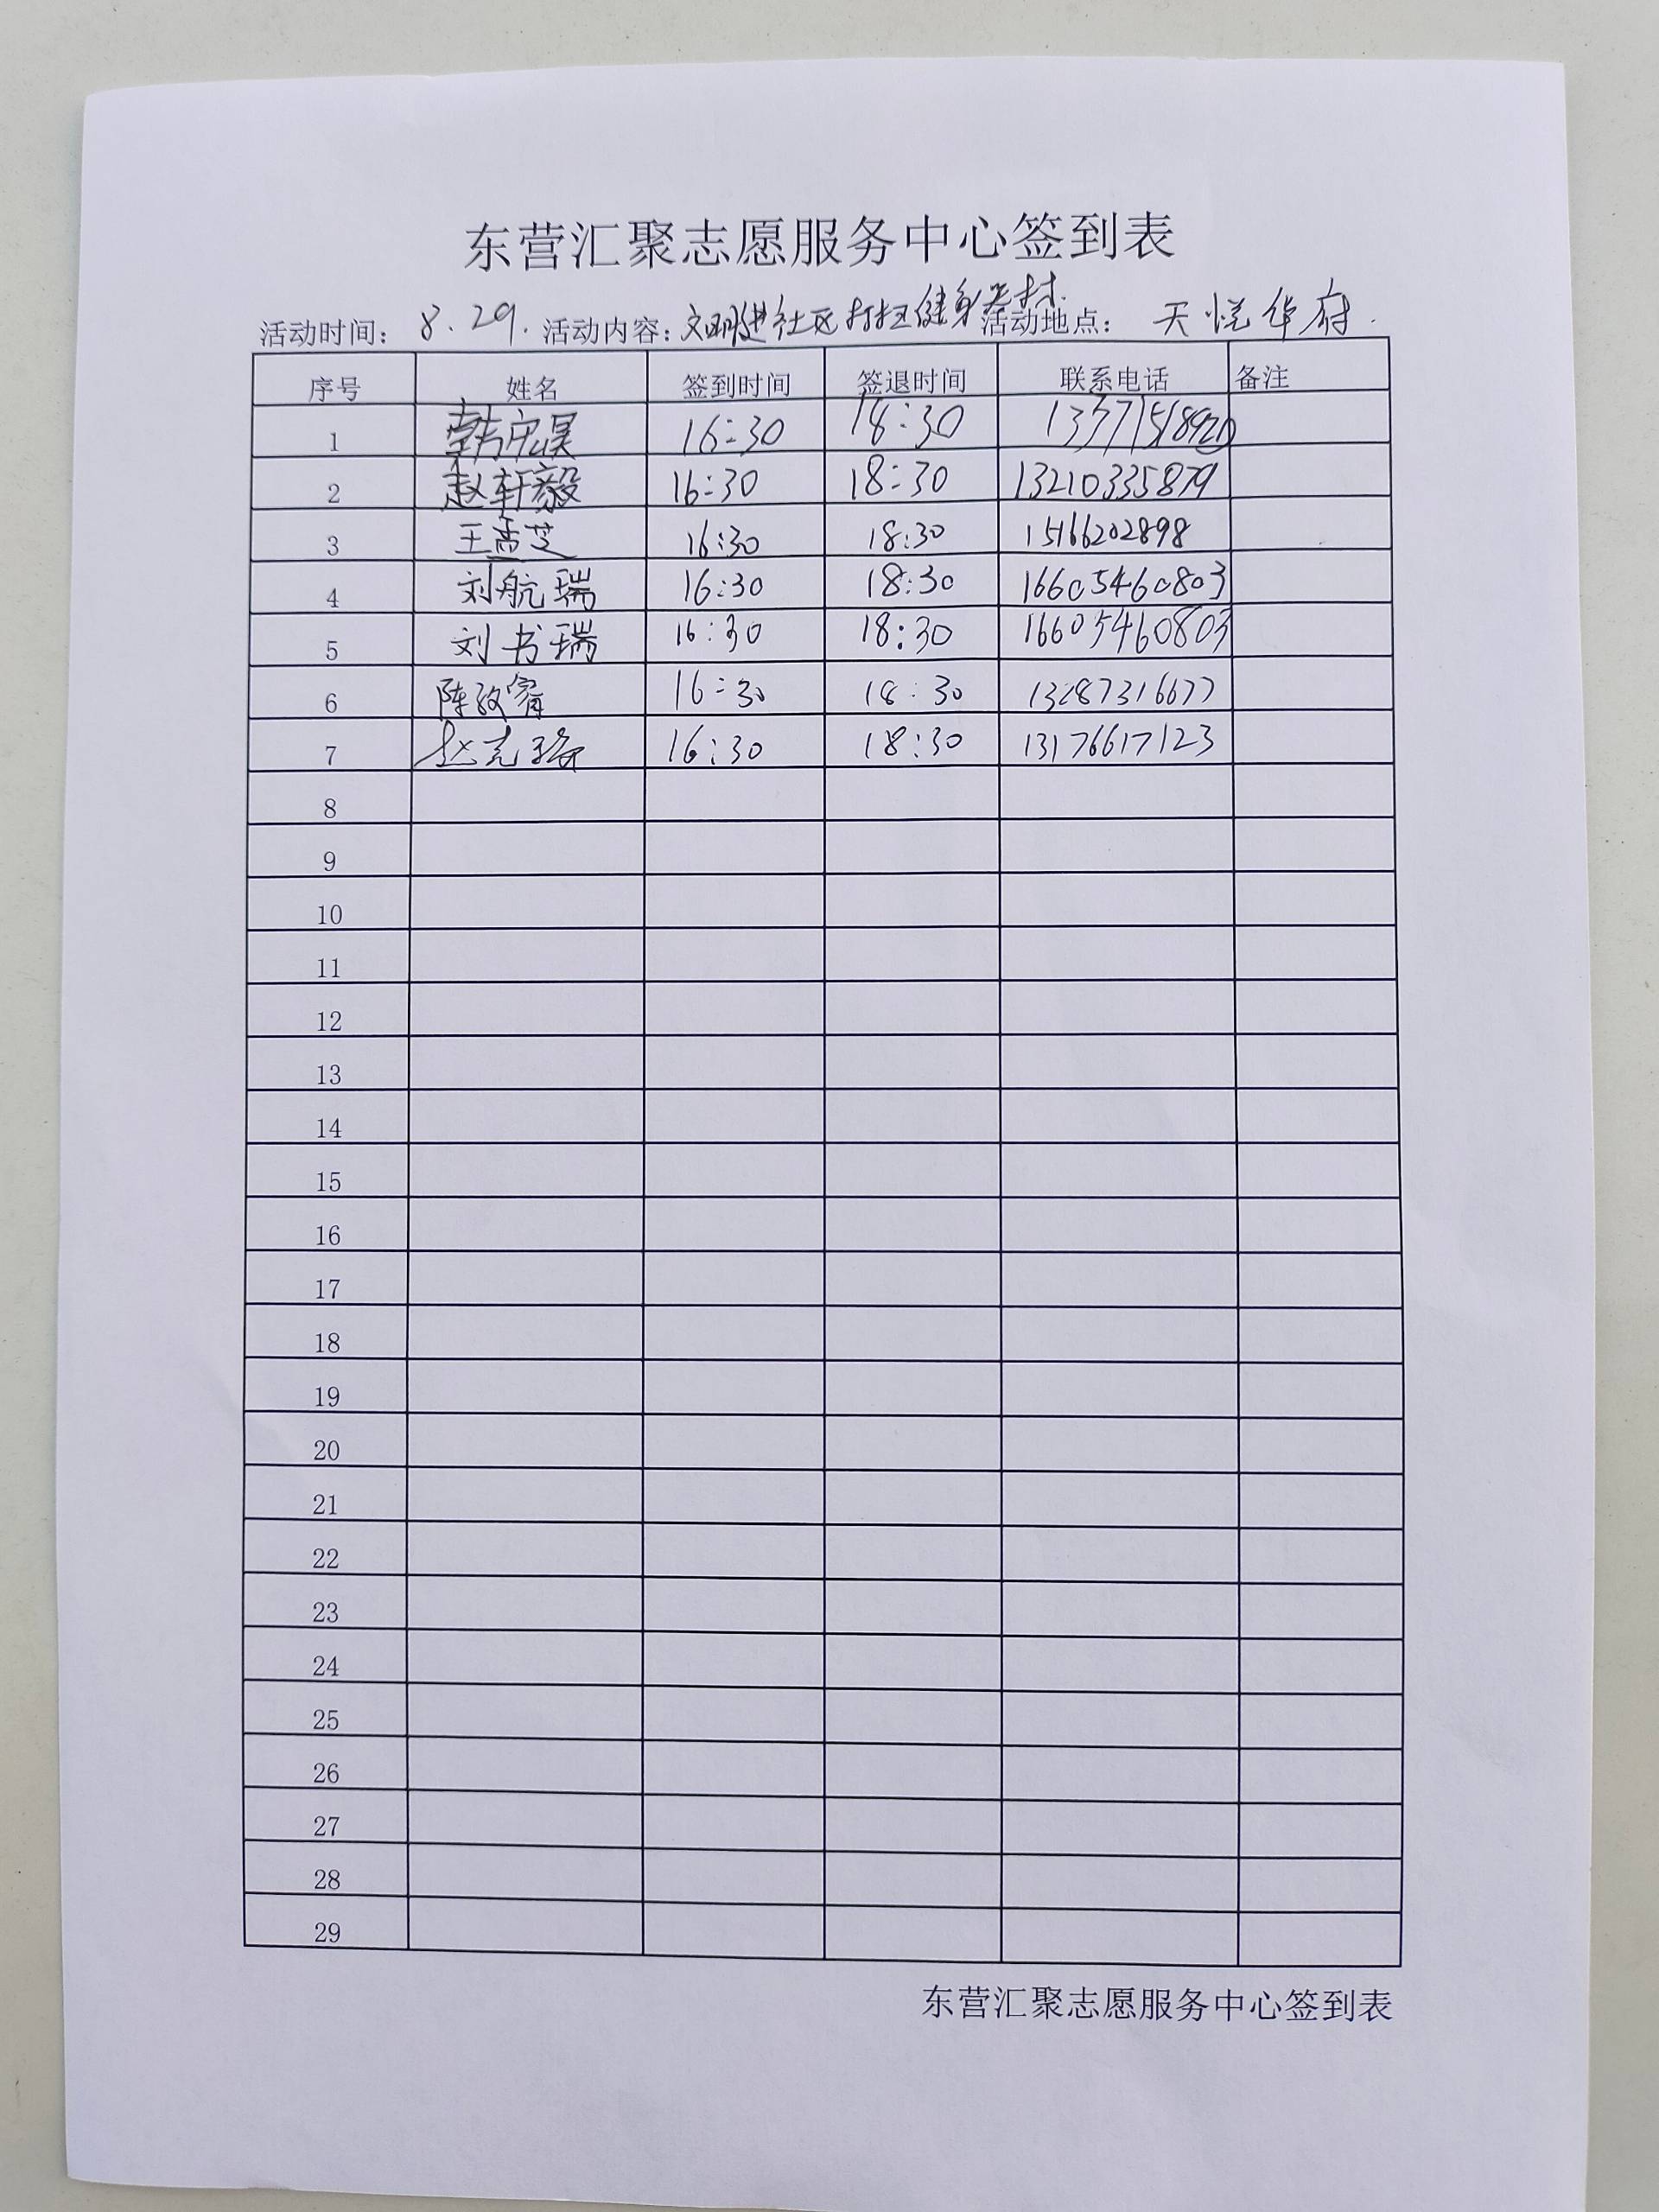 东营汇聚志愿服务中心签到表
活动时间： 8.29. 活动内容：文明进社区打扫健身器材 活动地点： 天悦华府.
序号 姓名 签到时间 签退时间 联系电话 备注
1 韩宏昊 16:30 18:30
2 赵轩毅 16:30 18:30 13210335879
3 王孟芝 16:30 18:30 15166202898
4 刘航瑞 16:30 18:30 16605460803
5 刘书瑞 16:30 18:30 16605460803
6 陈致睿 16:30 18:30 13287316677
7 赵克 16:30 18:30 13176617123
8
9
10
11
12
13
14
15
16
17
18
19
20
21
22
23
24
25
26
27
28
29
东营汇聚志愿服务中心签到表